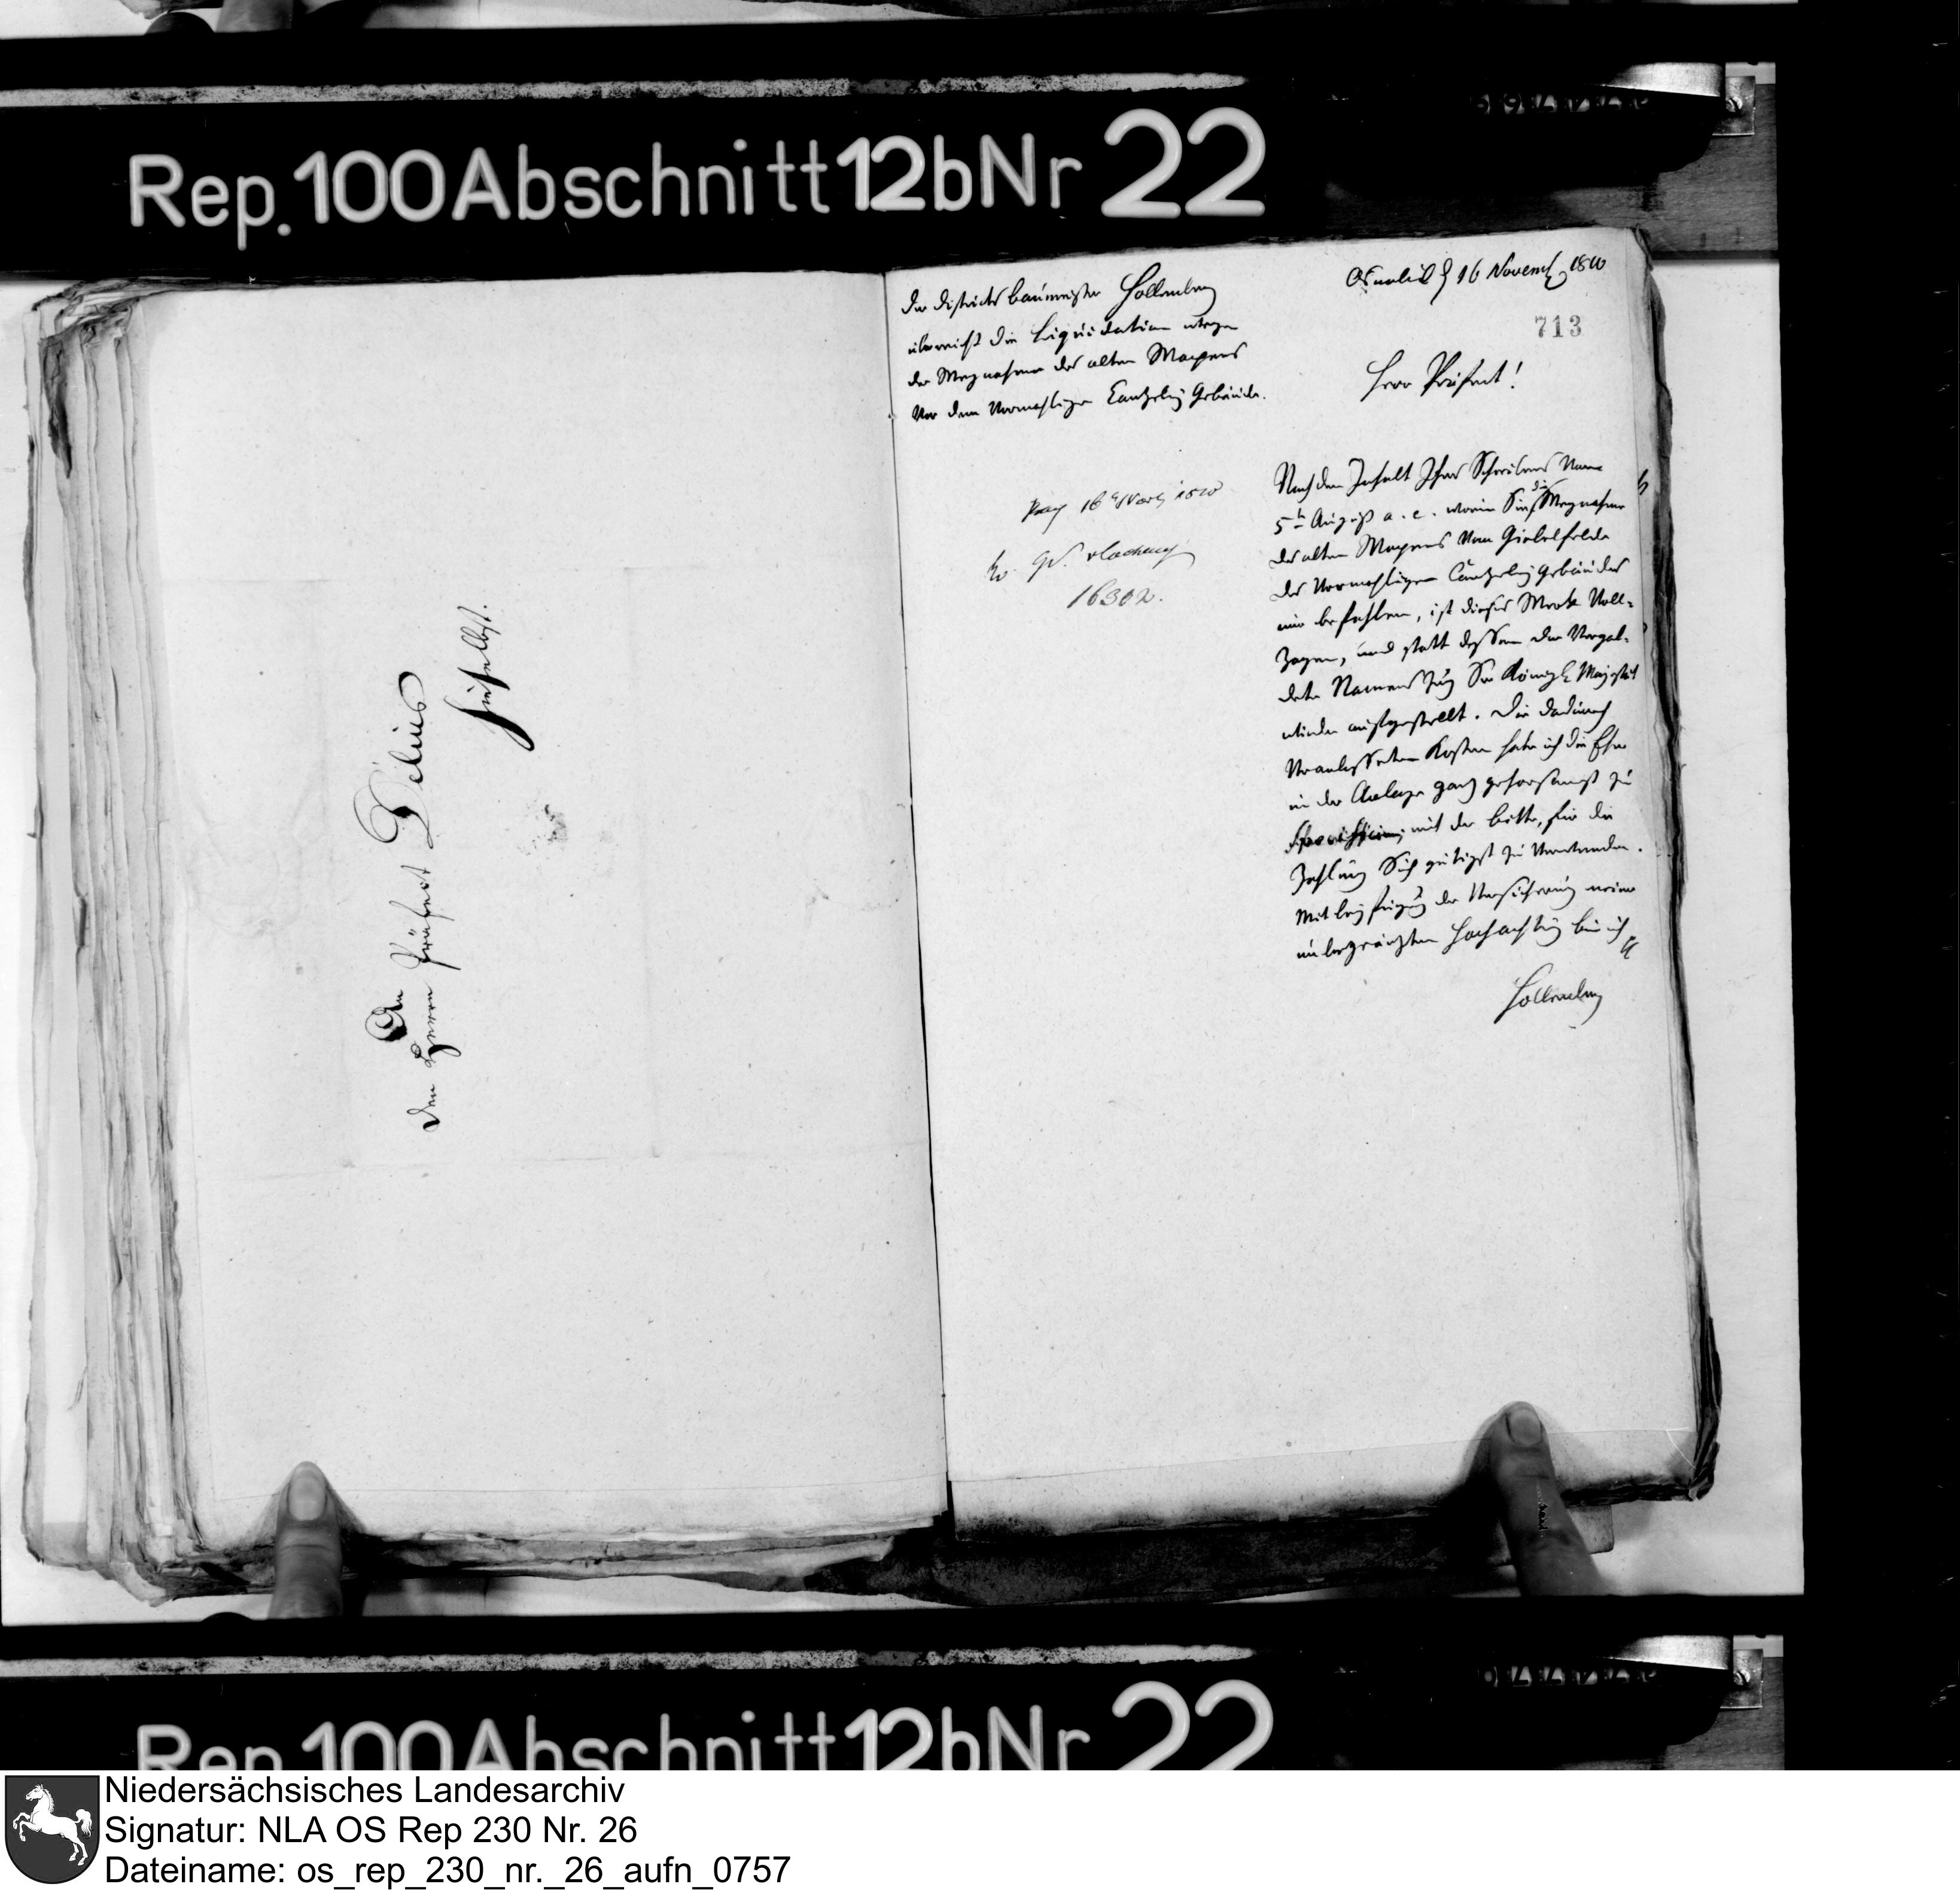 Rep. 100 Abschnitt 12b Nr 22
An
den Herrn Präfect Delius
hieselbst.
Der Districts baumeister Hollenberg
überreicht die Liquidation wegen
der Wegnahme des alten Wapens
vor dem vormahligen Cantzeley Gebäude.
16 1810
16302.
Osnabrück d 16 Novemb 1810
713
Herr Präfect!
Nach dem Inhalt Ihres Schreibens vom
5ten August a. c. worin Sie die Wegnahme
des alten Wapens vom Giebelfelde
des vormahligen Cantzeley gebäudes
mir befohlen, ist dieses Werk voll-
zogen, und statt dessen der vergol-
dete Namens Zug Sr Königl Majestät
wieder aufgestellt. Die dadurch
veranlasseten Kosten habe ich die Ehre
in der Anlage ganz gehorsamst zu
mit der bitte, für die
Zahlung Sich gütigst zu verwenden.
Mit beyfügung der Versicherung meiner
unbegränzten Hochachtung bin ich
Hollenberg
Rep. 100 Abschnitt 12b Nr 22
Niedersächsisches Landesarchiv
Signatur: NLA OS Rep 230 Nr. 26
Dateiname: os_rep_230_nr._26_aufn_0757